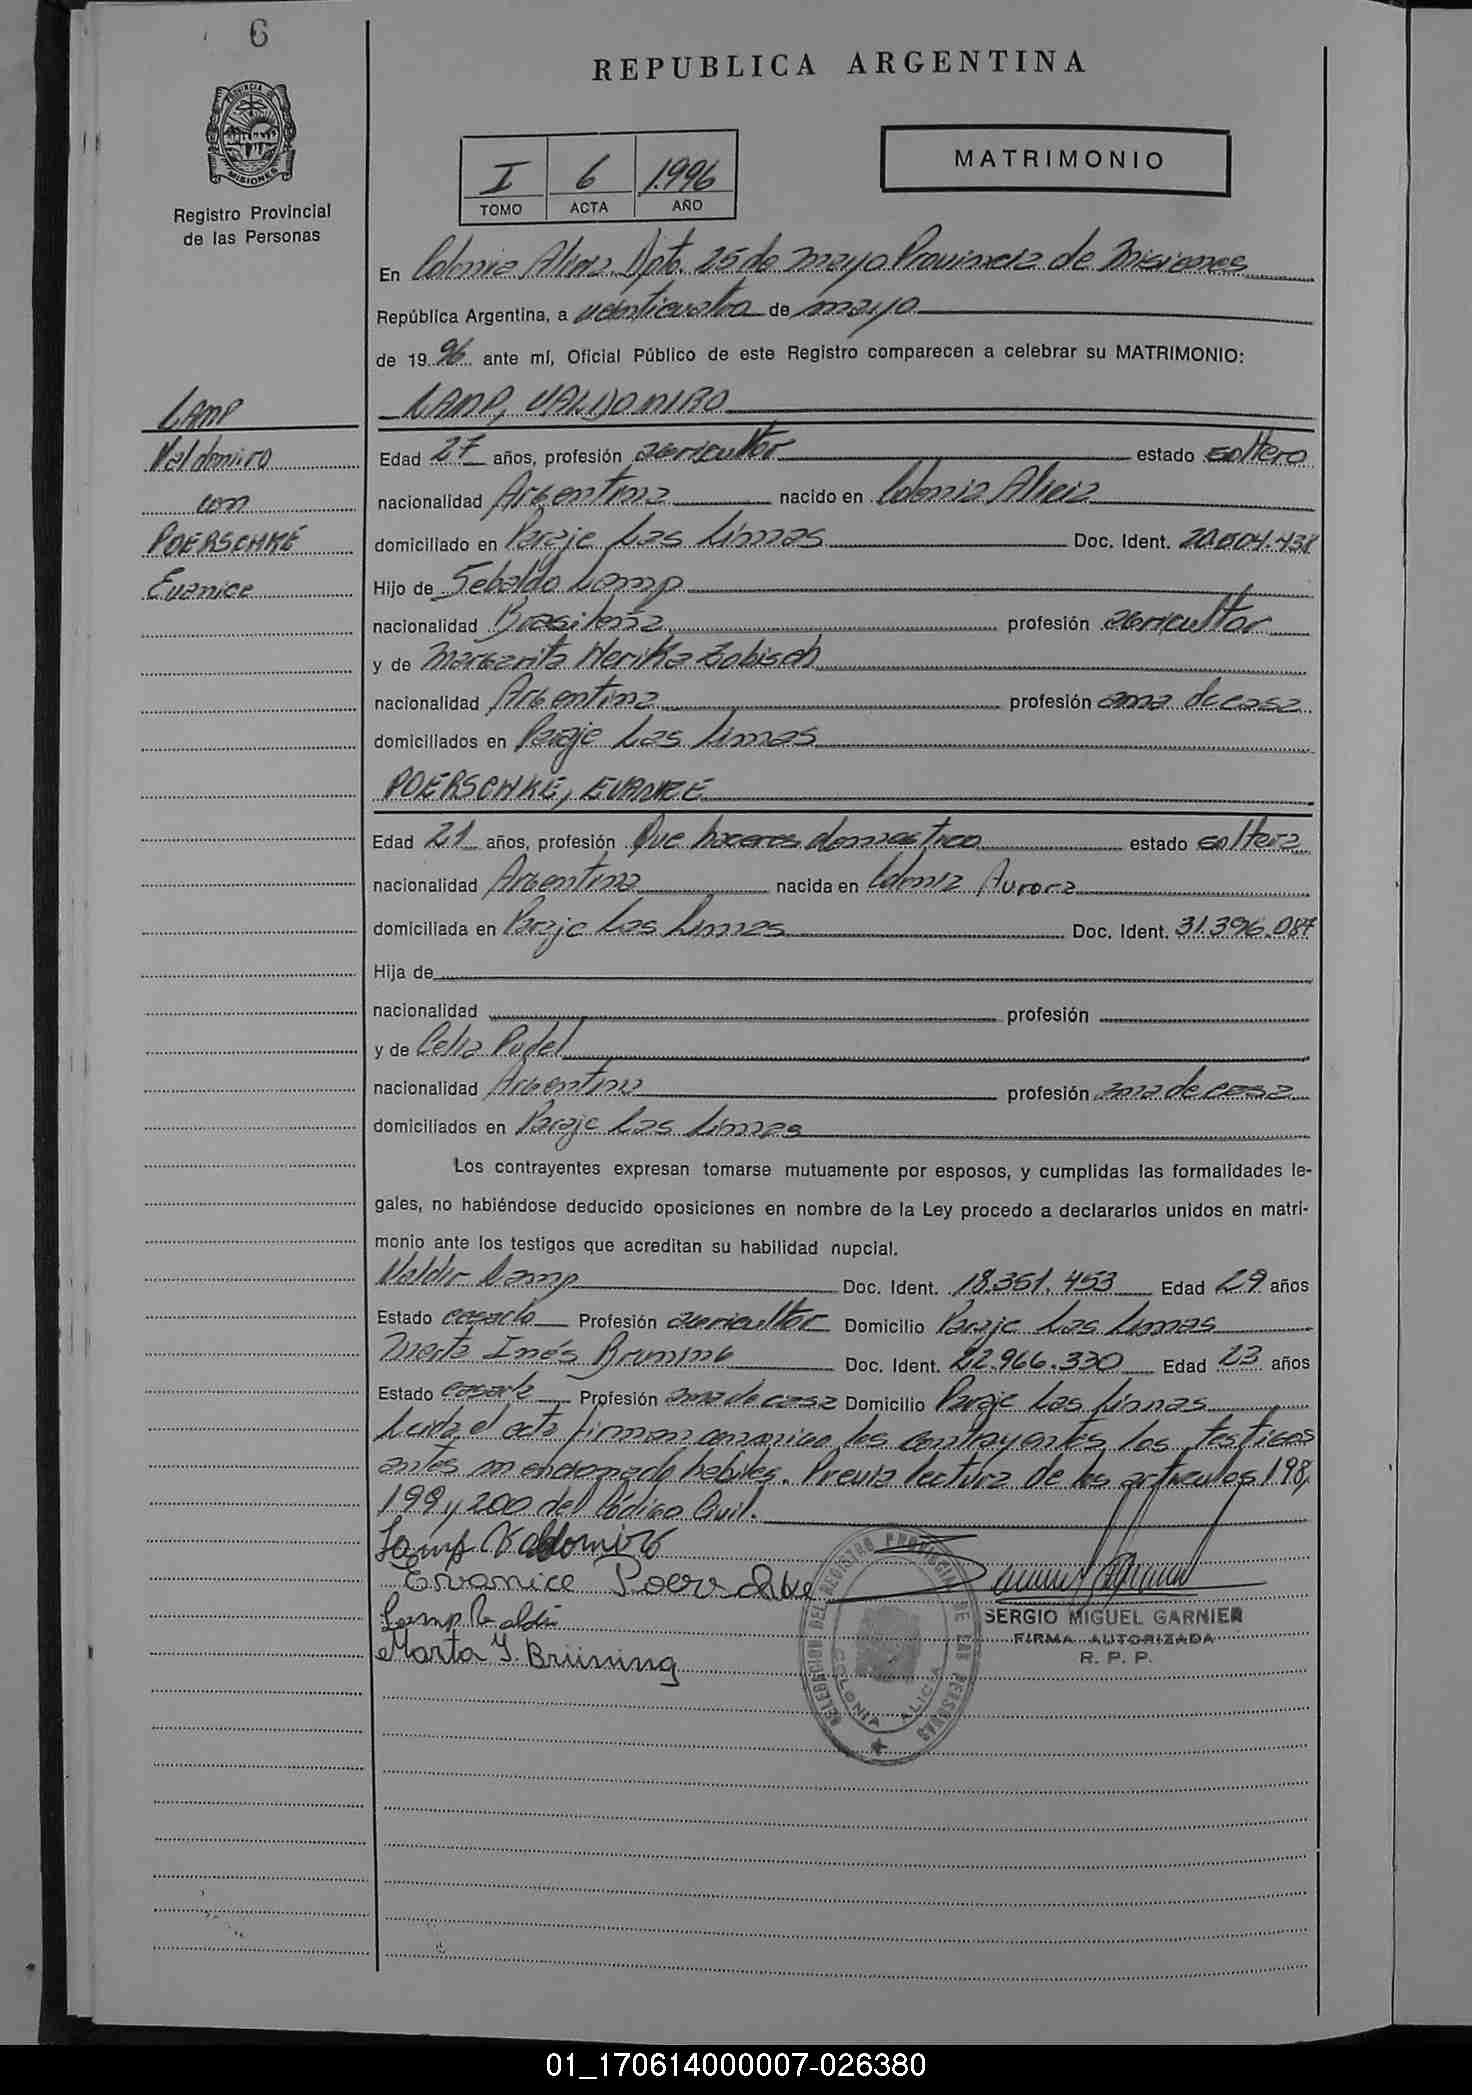 6
REPUBLICA ARGENTINA
PROVINCIA DE
MISIONES
Registro Provincial
de las Personas
I 6 1.996
TOMO ACTA AÑO
MATRIMONIO
En Colonia Alicia Dpto. 25 de mayo Provincia de Misiones
República Argentina, a veinticuatro de mayo
de 1996 ante mí, Oficial Público de este Registro comparecen a celebrar su MATRIMONIO:
LAMP
Valdomiro
con
POERSCHKE
Evanice
LAMP, VALDOMIRO
Edad 27 años, profesión agricultor estado soltero
nacionalidad Argentina nacido en Colonia Alicia
domiciliado en Paraje Las Limas Doc. Ident. 20.604.438
Hijo de Sebaldo Lamp
nacionalidad Brasileña profesión agricultor
y de Margarita Herika Zobisch
nacionalidad Argentina profesión ama de casa
domiciliados en Paraje Las Limas
POERSCHKE, EVANICE
Edad 21 años, profesión Que haceres domestico estado soltera
nacionalidad Argentina nacida en Colonia Aurora
domiciliada en Paraje Las Limas Doc. Ident. 31.396.087
Hija de
nacionalidad profesión
y de Celia Pudel
nacionalidad Argentina profesión ama de casa
domiciliados en Paraje Las Limas
Los contrayentes expresan tomarse mutuamente por esposos, y cumplidas las formalidades le-
gales, no habiéndose deducido oposiciones en nombre de la Ley procedo a declararlos unidos en matri-
monio ante los testigos que acreditan su habilidad nupcial.
Valdir Lamp Doc. Ident. 18.351.453 Edad 29 años
Estado casado Profesión agricultor Domicilio Paraje Las Limas
Marta Inés Bruning Doc. Ident. 22.966.330 Edad 23 años
Estado casada Profesión ama de casa Domicilio Paraje Las Limas
Leida el acta firman conmigo los contrayentes los testigos
antes mencionado habiles. Previa lectura de los articulos 198,
199 y 200 del Código Civil.
Lamp Valdomiro
Evanice Poerschke
Lamp Valdir
Marta I. Brüning
DELEGACION DEL REGISTRO PROVINCIAL DE LAS PERSONAS
COLONIA ALICIA
SERGIO MIGUEL GARNIER
FIRMA AUTORIZADA
R. P. P.
01_170614000007-026380